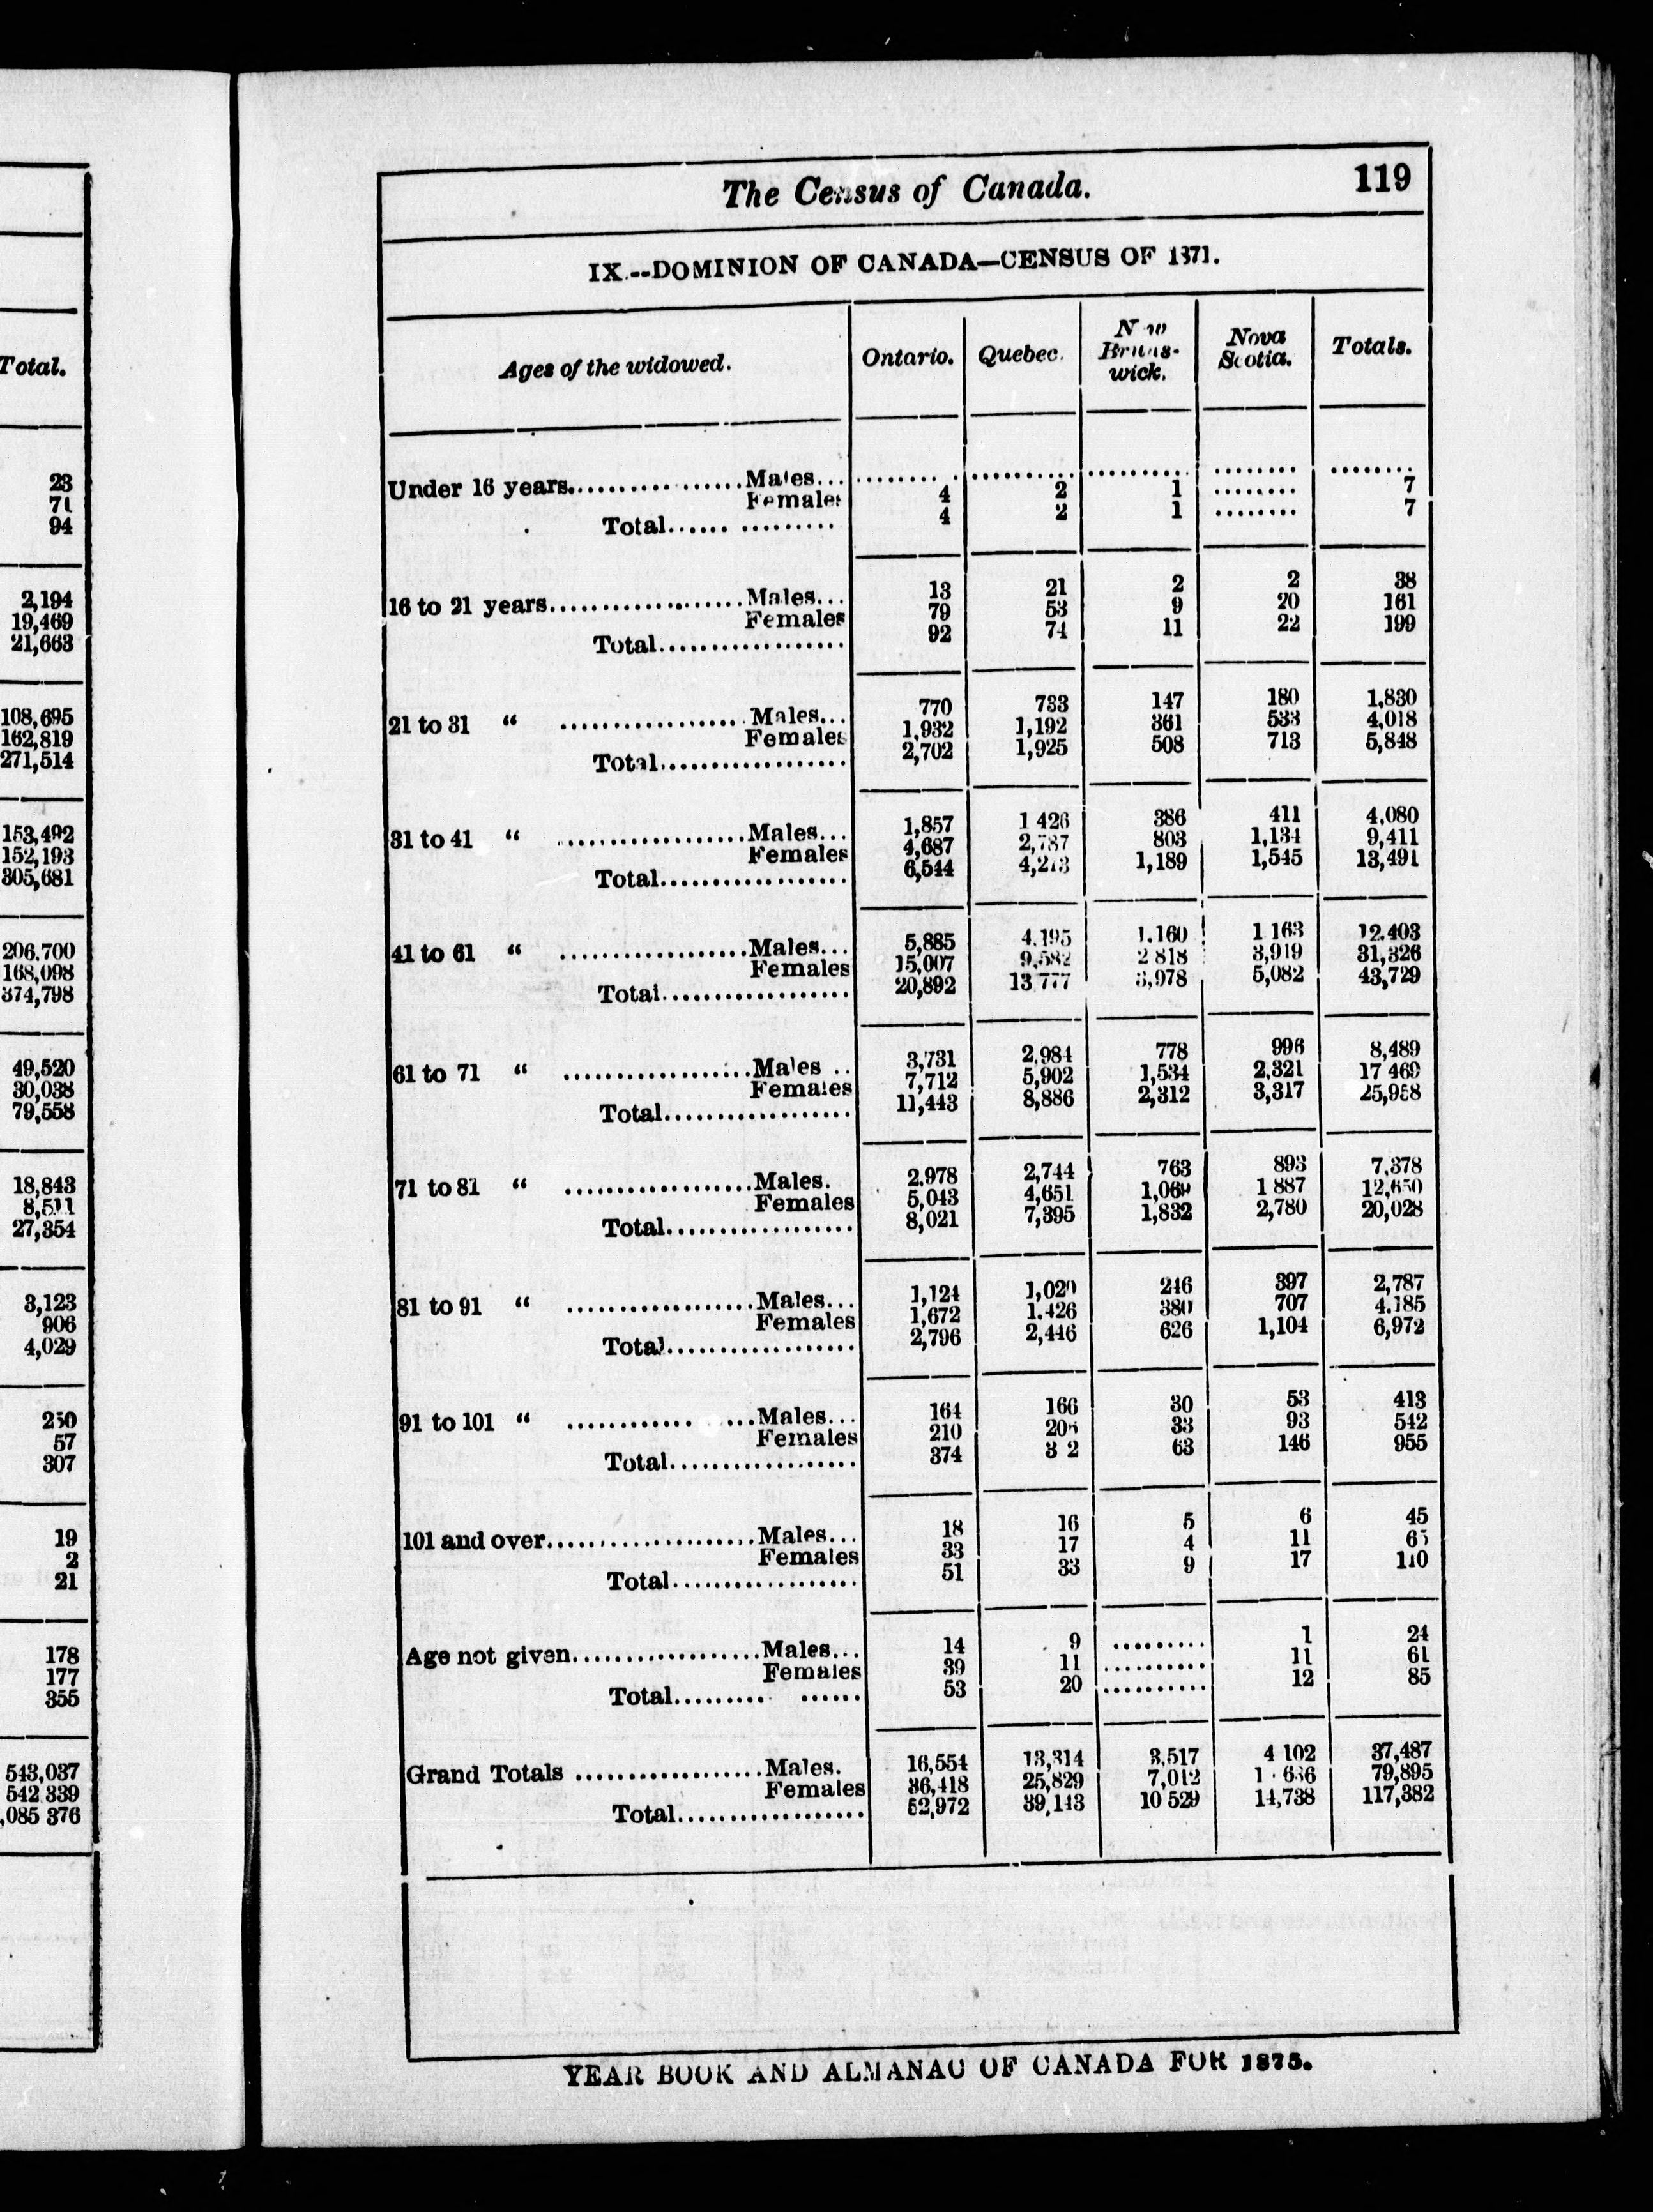 Total.
23
71
94
2,194
19,469
21,663
108,695
162,819
271,514
153,492
152,193
305,681
206,700
168,098
374,798
49,520
30,038
79,558
18,843
8,511
27,354
3,123
906
4,029
250
57
307
19
2
21
178
177
355
543,037
542 339
,085 376
The Census of Canada. 119
IX.--DOMINION OF CANADA—CENSUS OF 1871.
Ages of the widowed. Ontario. Quebec. New Bruns-wick. Nova Scotia. Totals.
Under 16 years.................Males... .......... .......... .......... ........ ........
Females 4 2 1 ........ 7
Total...... ......... 4 2 1 ........ 7
16 to 21 years...................Males... 13 21 2 2 38
Females 79 53 9 20 161
Total.................. 92 74 11 22 199
21 to 31 “ ..................Males... 770 733 147 180 1,830
Females 1,932 1,192 361 533 4,018
Total.................. 2,702 1,925 508 713 5,848
31 to 41 “ ..................Males... 1,857 1 426 386 411 4,080
Females 4,687 2,787 803 1,134 9,411
Total.................. 6,544 4,213 1,189 1,545 13,491
41 to 61 “ ..................Males... 5,885 4,195 1.160 1 163 12.403
Females 15,007 9,582 2 818 3,919 31,326
Total.................. 20,892 13 777 3,978 5,082 43,729
61 to 71 “ ..................Males .. 3,731 2,984 778 996 8,489
Females 7,712 5,902 1,534 2,321 17 469
Total.................. 11,443 8,886 2,312 3,317 25,958
71 to 81 “ ..................Males. 2.978 2,744 763 893 7,378
Females 5,043 4,651 1,069 1 887 12,650
Total.................. 8,021 7,395 1,832 2,780 20,028
81 to 91 “ ..................Males... 1,124 1,020 246 397 2,787
Females 1,672 1.426 380 707 4.185
Total.................. 2,796 2,446 626 1,104 6,972
91 to 101 “ ............ ...Males... 164 166 30 53 413
Females 210 206 33 93 542
Total.................. 374 3 2 63 146 955
101 and over....................Males... 18 16 5 6 45
Females 33 17 4 11 65
Total.................. 51 33 9 17 110
Age not given..................Males... 14 9 ......... 1 24
Females 39 11 .......... 11 61
Total......... ...... 53 20 .......... 12 85
Grand Totals ..................Males. 16,554 13,314 3,517 4 102 37,487
Females 36,418 25,829 7,012 79,895
Total.................. 52,972 39,143 10 529 14,738 117,382
YEAR BOOK AND ALMANAC OF CANADA FOR 1875.